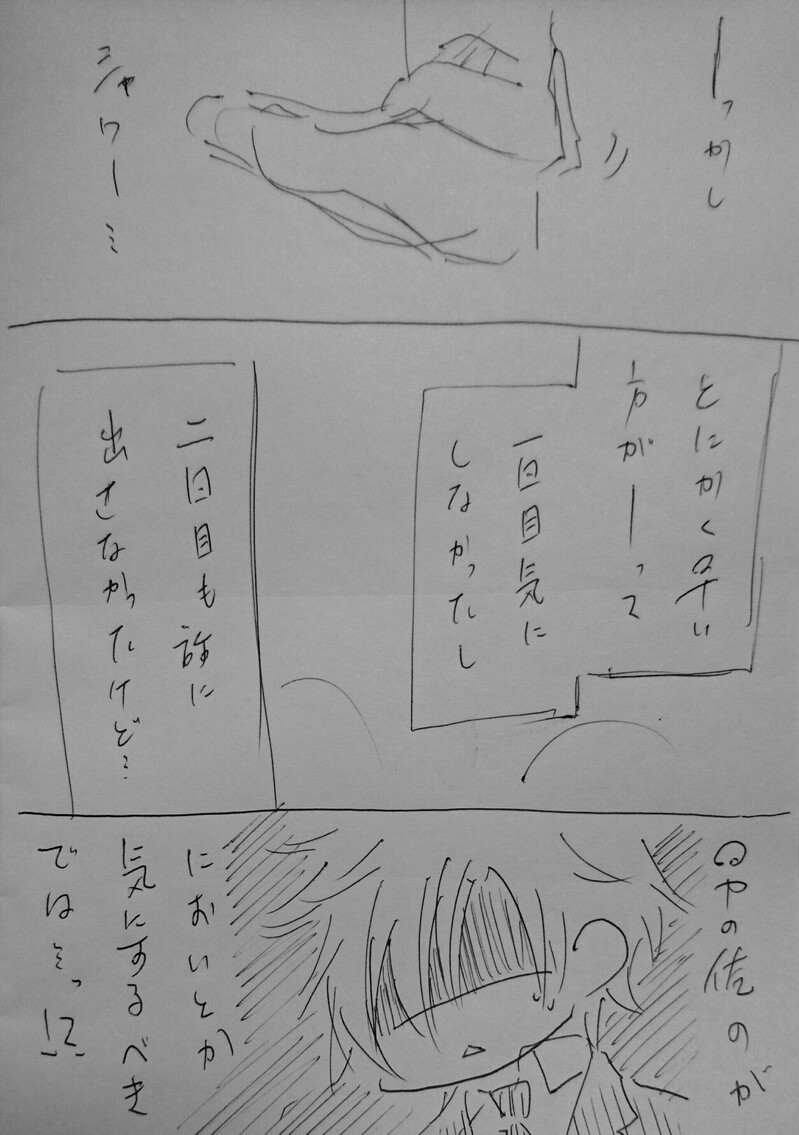 ーっかし
シャワー…
とにかく早い
方がーって
一回目気に
しなかったし
二回目も誰に
出さなかったけど…
の佐のが
においとか
気にするべき
では…っ!?